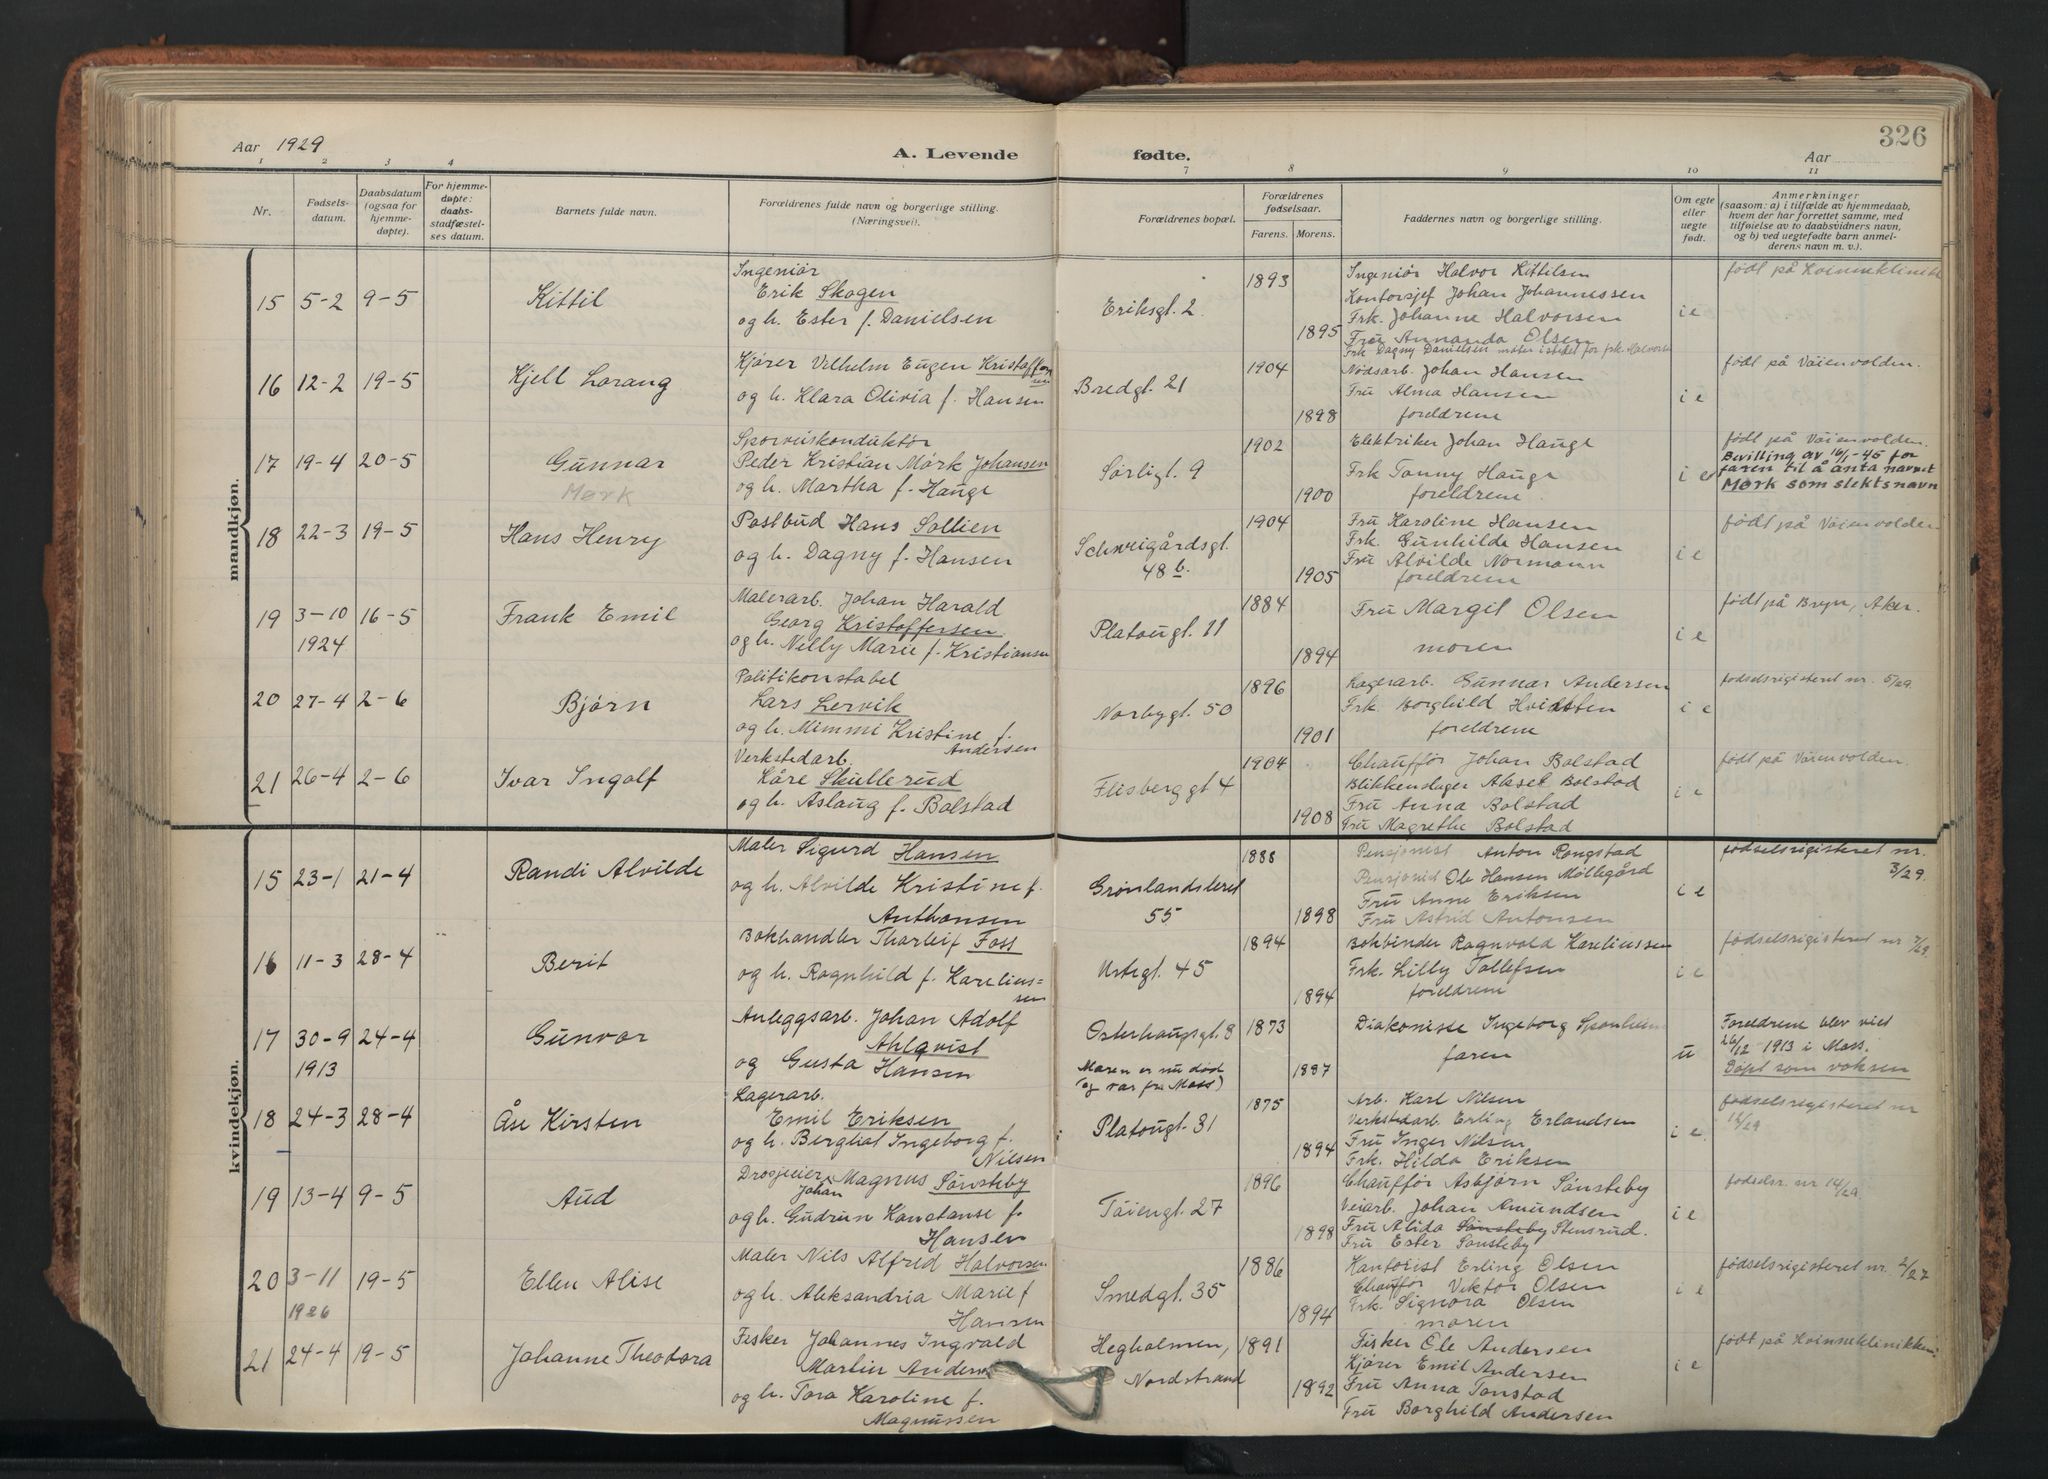 Aar 1929
A. Levende
fødte.
Aar
326
1 2 3 4 7 8 9 10 11
Nr.
Fødsels-
datum.
Daabsdatum
(ogsaa for
hjemme-
døpte).
For hjemme-
døpte:
daabs-
stadfæstel-
ses datum.
Barnets fulde navn.
Forældrenes fulde navn og borgerlige stilling.
(Næringsvei).
Forældrenes bopæl.
Forældrenes
fødselsaar.
Farens. Morens.
Faddernes navn og borgerlige stilling.
Om egte
eller
uegte
født.
Anmerkninger
(saasom: a) i tilfælde av hjemmedaab,
hvem der har forrettet samme, med
tilføielse av to daabsvidners navn,
og b) ved uegtefødte barn anmel-
derens navn m. v.).
mandkjøn.
15 5-2 9-5 Kittil
Ingeniør
Erik Skogen
og h. Ester f. Danielsen
Eriksgt. 2
1893
1895
Ingeniør Halvor Kittilsen
Kontorsjef Johan Johannessen
Frk. Johanne Halvorsen
Fru Annanda Olsen
Frk Dagny Danielsen møter istedet for frk. Halvorsen
i e
født på Kvinneklinikk
16 12-2 19-5 Kjell Lorang
Kjører Vilhelm Eugen Kristoffer
sen
og h. Klara Olivia f. Hansen
Bredgt. 21
1904
1898
Nødsarb. Johan Hansen
Fru Alma Hansen
foreldrene
i e
født på Vøienvolden.
17 19-4 20-5 Gunnar
Mørk
Sporveiskonduktør
Peder Kristian Mørk Johansen
og h. Martha f. Hauge
Sørligt. 9
1902
1900
Elektriker Johan Hauge
Frk Tonny Hauge
foreldrene
i e
født på Vøienvolden.
Bevilling av 16/1-45 for
faren til å anta navnet
Mørk som slektsnavn
18 22-3 19-5 Hans Henry
Postbud Hans Sollien
og h. Dagny f. Hansen
Schweigårdsgt.
48 b.
1904
1905
Fru Karoline Hansen
Frk. Gunhilde Hansen
Fru Alvilde Normann
foreldrene
i e
født på Vøienvolden
19 3-10 16-5 Frank Emil
1924
Malerarb. Johan Harald
Georg Kristoffersen
og h. Nelly Marie f. Kristiansen
Platougt. 11
1884
1894
Fru Margit Olsen
moren
i e
født på Bryn, Aker.
20 27-4 2-6 Bjørn
Politikonstabel
Lars Lervik
og h. Mimmi Kristine f.
Andersen
Norbygt. 50
1896
1901
Lagerarb. Gunnar Andersen
Frk. Borghild Hvidsten
foreldrene
i e
fødselsregisteret nr. 5/29.
21 26-4 2-6 Ivar Ingolf
Verkstedarb.
Kåre Skullerud
og h. Aslaug f. Bolstad
Flisberggt 4
1904
1908
Chauffør Johan Bolstad
Blikkenslager Aksel Bolstad
Fru Anna Bolstad
Fru Magrethe Bolstad
i e
født på Vøienvolden.
kvindekjøn.
15 23-1 21-4 Randi Alvilde
Maler Sigurd Hansen
og h. Alvilde Kristine f.
Anthonsen
Grønlandsleret
55
1888
1898
Pensjonist Anton Rongstad
Pensjonist Ole Hansen Møllegård
Fru Anne Eriksen
Fru Astrid Antonsen
i e
fødselsregisteret nr.
3/29.
16 11-3 28-4 Berit
Bokhandler Thorleif Foss
og h. Ragnhild f. Karelius-
sen
Urtegt. 45
1894
1894
Bokbinder Ragnvold Kareliussen
Frk. Lilly Tollefsen
foreldrene
i e
fødselsregisteret nr 7/29.
17 30-9 24-4 Gunvor
1913
Anleggsarb. Johan Adolf
Ahlqvist
og Gusta Hansen
Osterhausgt. 8
Moren er nu død
(og var fra Moss)
1873
1887
Diakonisse Ingeborg Sponheim
faren
u
Foreldrene blev viet
26/12 1913 i Moss.
Døpt som voksen
18 24-3 28-4 Åse Kirsten
Lagerarb.
Emil Eriksen
og h. Bergliot Ingeborg f.
Nilsen
Platougt. 31
1875
1894
Arb. Karl Nilsen
Verkstedarb. Erling Erlandsen
Fru Inger Nilsen
Frk. Hilda Eriksen
i e
fødselsregisteret nr
19 13-4 9-5 Aud
Drosjeeier Magnus Sønsteby
Johan
og h. Gudrun Konstanse f.
Hansen
Tøiengt. 27
1896
1898
Chauffør Asbjørn Sønsteby
Veiarb. Johan Amundsen
Fru Alida Sønsteby Stensrud.
Fru Ester Sønsteby
i e
fødselsr. nr 14/29.
20 3-11 19-5 Ellen Alise
1926
Maler Nils Alfred Halvorsen
og h. Aleksandria Marie f
Hansen
Smedgt. 35
1886
1894
Kontorist Erling Olsen
Chauffør Viktor Olsen
Frk. Signora Olsen
moren
i e
fødselsregisteret nr. 2/27
21 24-4 19-5 Johanne Theodora
Fisker Johannes Ingvald
Martin Anders
og h. Tora Karoline f.
Magnussen
Hegholmen,
Nordstrand
1891
1892
Fisker Ole Andersen
Kjører Emil Andersen
Fru Anna Tonstad
Fru Borghild Andersen
i e
født på Kvinneklinikken.